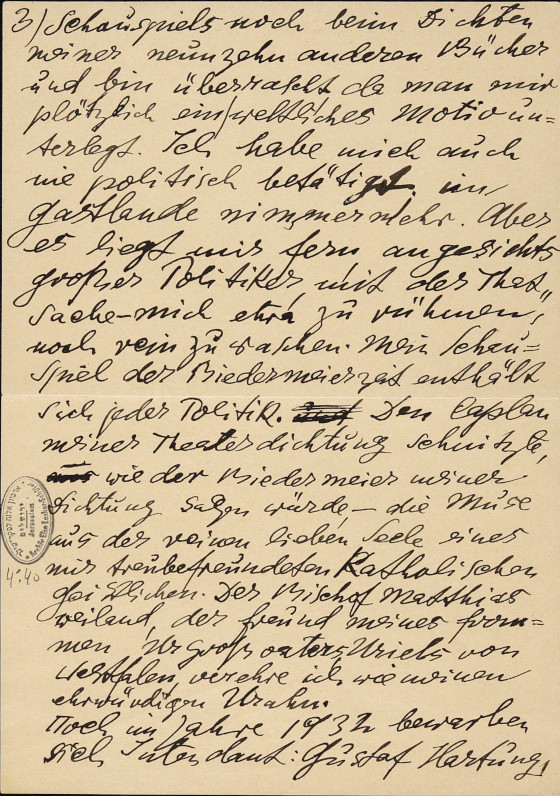 3) Schauspiels noch beim Dichten
meiner neunzehn anderen Bücher
und bin überrascht da man mir
plötzlich ein weltliches Motiv un=
terlegt. Ich habe mich auch
nie politisch betätigt. im
Gastlande nimmermehr. Aber
es liegt mir fern angesichts
großer Politiker, mit der That
Sache - mich etwa zu rühmen,
noch rein zu waschen. Mein Schau=
spiel der Biedermeierzeit enthält
sich jeder Politik. Den Caplan
meiner Theaterdichtung schnitzte,
wie der Biedermeier meiner
Dichtung sagen würde – die Muse
aus der reinen lieben Seele eines
mir treubefreundeten Katholischen
Geistlichen. Der Bischof Matthias
weiland, der Freund meines from=
men Urgroßvaters Uriels von
Westfalen, verehre ich wie meinen
ehrwürdigen Urahn.
Noch im Jahre 1932 bewarben
sich Intendant: Gustaf Hartung,
ירושלים
Jerusalem
4:40